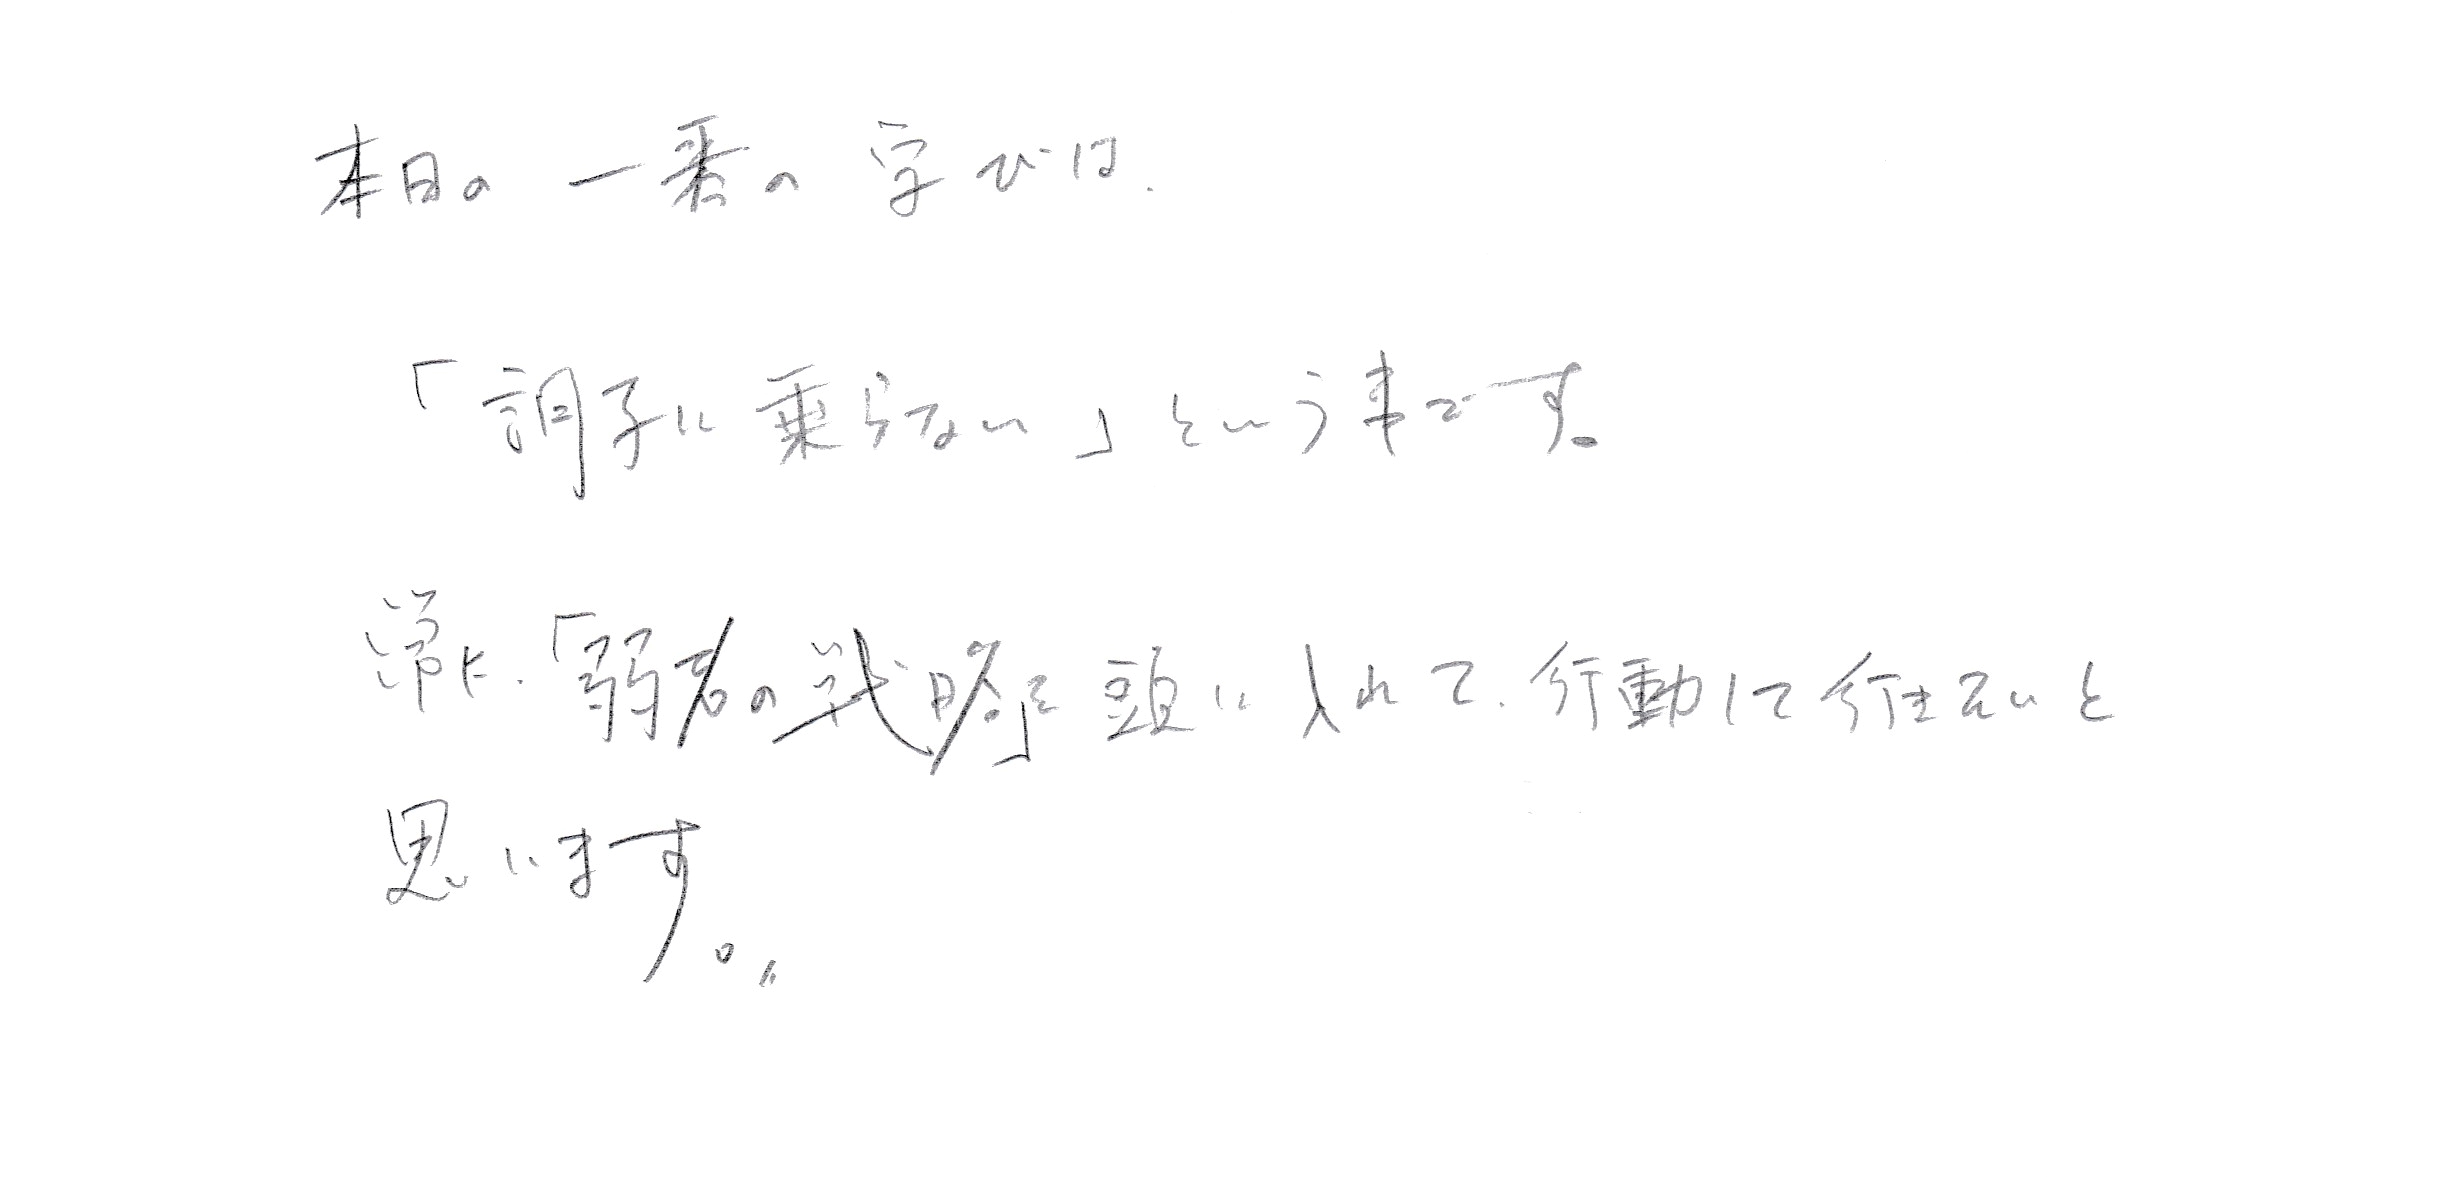 本日の一番の学びは、
「調子に乗らない」という事です。
常に、「弱者の戦略」を頭に入れて、行動して行きたいと
思います。〃